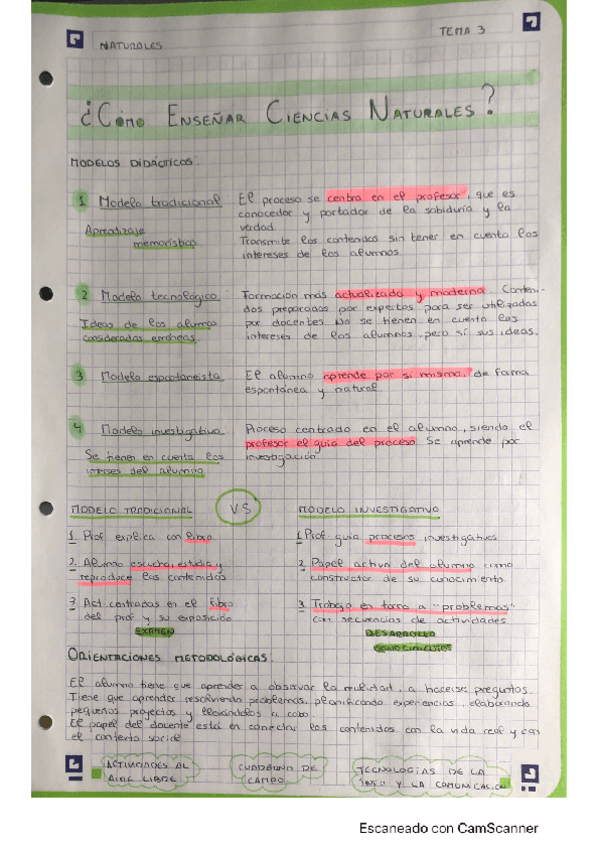 NATURALES
TEMA 3
¿Cómo Enseñar Ciencias Naturales?
MODELOS DIDÁCTICOS.
1 Modelo tradicional
Aprendizaje
memorístico
El proceso se centra en el profesor, que es
conocedor y portador de la sabiduría y la
verdad.
Transmite los contenidos sin tener en cuenta los
intereses de los alumnos
2 Modelo tecnológico
Ideas de los alumnos
consideradas erróneas.
Formación más actualizada y moderna. Conteni-
dos preparados por expertos para ser utilizados
por docentes No se tienen en cuenta los
intereses de los alumnos, pero sí sus ideas.
3 Modelo espontaneista
El alumno aprende por sí mismo, de forma
espontánea y natural
4 Modelo investigativo
Se tienen en cuenta los
intereses del alumno
Proceso centrado en el alumno, siendo el
profesor el guía del proceso Se aprende por
investigación
MODELO TRADICIONAL
VS
MODELO INVESTIGATIVO
1. Prof explica con libro
2. Alumno escucha, estudia y
reproduce los contenidos
3. Act centradas en el libro
del prof y su exposición
EXAMEN
1. Prof guía procesos investigativos
2. Papel activo del alumno como
constructor de su conocimiento
3. Trabajo en torno a "problemas"
con secuencias de actividades
DESARROLLO
CONOCIMIENTOS
ORIENTACIONES METODOLÓGICAS.
El alumno tiene que aprender a observar la realidad, a hacerse preguntas.
Tiene que aprender resolviendo problemas, planificando experiencias, elaborando
pequeños proyectos y llevándolos a cabo
El papel del docente está en conectar los contenidos con la vida real y con
el contexto social
ACTIVIDADES AL
AIRE LIBRE
CUADERNO DE
CAMPO
TECNOLOGÍAS DE LA
INFO Y LA COMUNICACIÓN
Escaneado con CamScanner